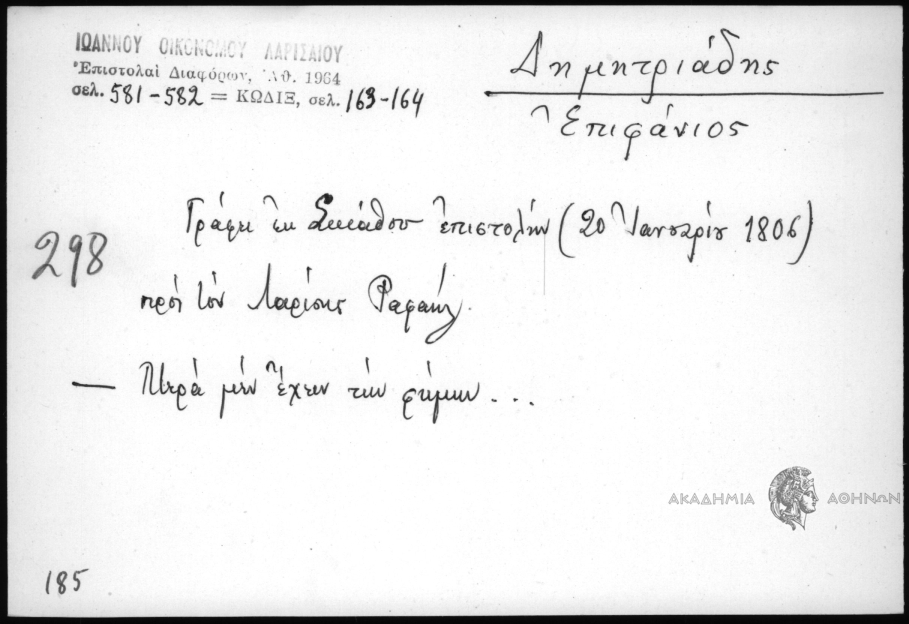 ΙΩΑΝΝΟΥ ΟΙΚΟΝΟΜΟΥ ΛΑΡΙΣΑΙΟΥ
Ἐπιστολαὶ Διαφόρων, Ἀθ. 1964
σελ. 581-582 = ΚΩΔΙΞ, σελ. 163-164
Δημητριάδης
Ἐπιφάνιος
Γράφει ἐκ Σκιάθου ἐπιστολὴν (20 Ἰανουαρίου 1806)
298
πρὸς τὸν Λαρίσης Ραφαήλ.
— Πτερὰ μὲν ἔχειν τὴν φήμην ...
ΑΚΑΔΗΜΙΑ ΑΘΗΝΩΝ
185